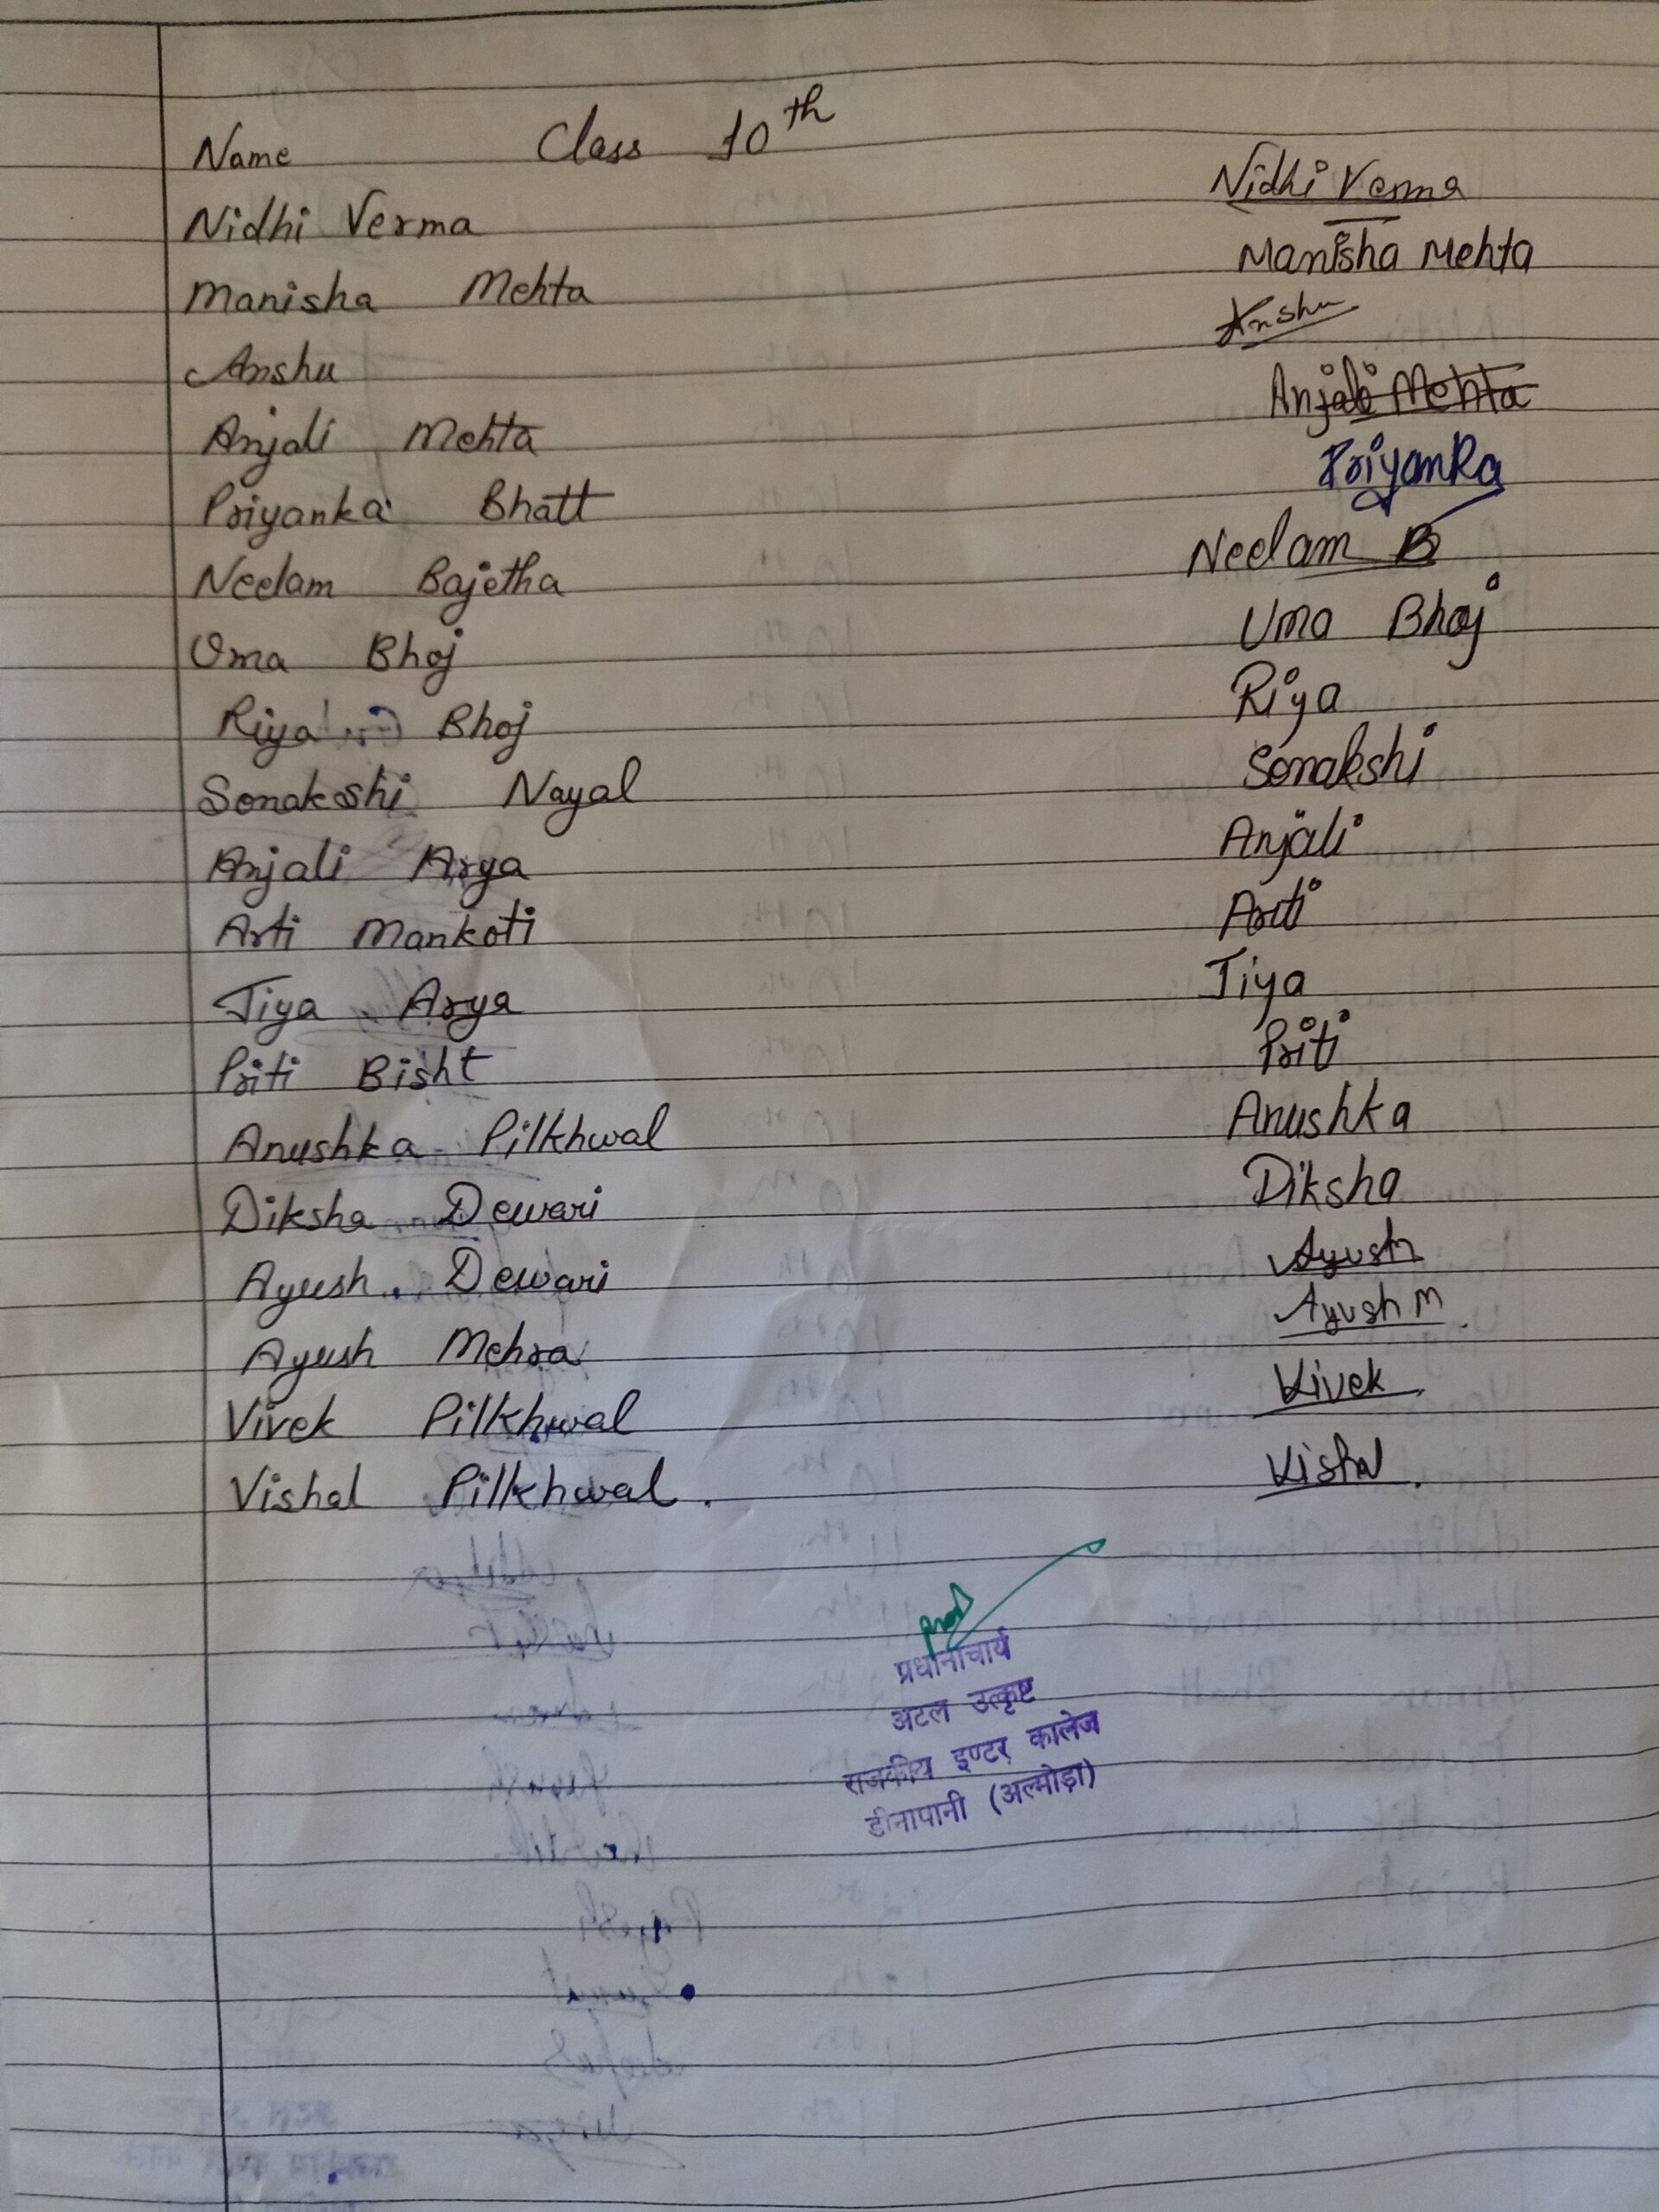 Name Class 10th
Nidhi Verma Nidhi Verma
Manisha Mehta Manisha Mehta
Anshu Anshu
Anjali Mehta Anjali Mehta
Priyanka Bhatt Priyanka
Neelam Bajetha Neelam B
Uma Bhoj Uma Bhoj
Riya Bhoj Riya
Sonakshi Nayal Sonakshi
Anjali Arya Anjali
Arti Mankoti Arti
Jiya Arya Jiya
Priti Bisht Priti
Anushka Pilkhwal Anushka
Diksha Dewari Diksha
Ayush Dewari Ayush
Ayush Mehra Ayush M.
Vivek Pilkhwal Vivek.
Vishal Pilkhwal. Vishal.
प्रधानाचार्य
अटल उत्कृष्ट
राजकीय इण्टर कालेज
डीनापानी (अल्मोड़ा)